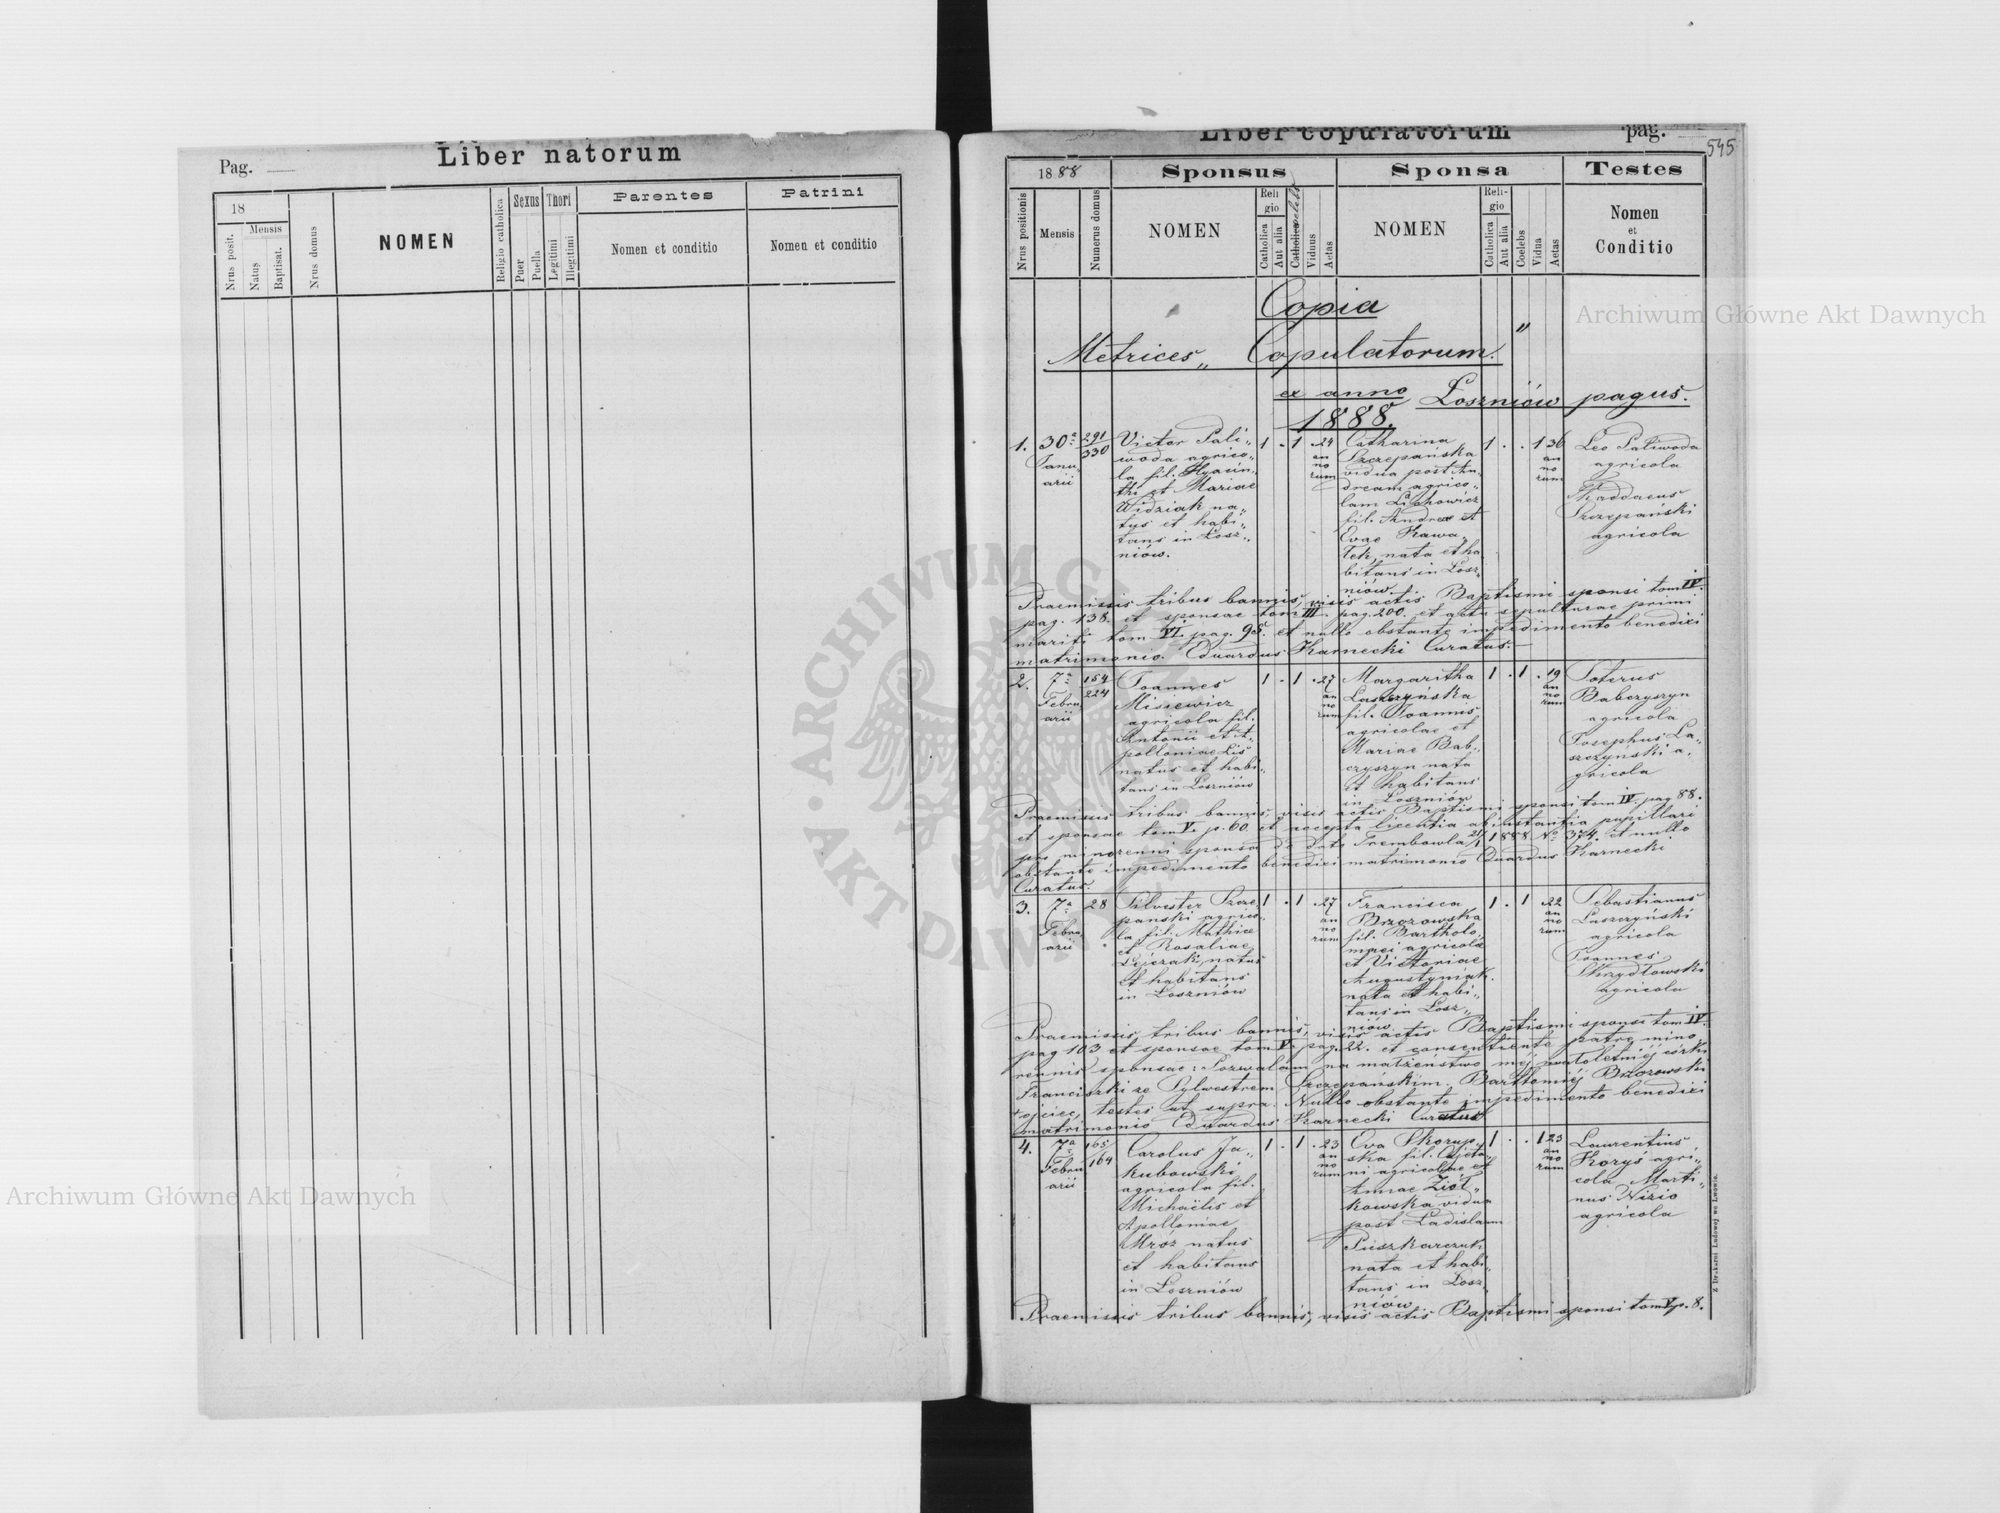 Pag.
Liber natorum
18
Mensis
Nrus posit.
Natus
Baptisat.
Nrus domus
NOMEN
Religio catholica
Sexus
Puer
Puella
Thori
Legitimi
Illegitimi
Parentes
Nomen et conditio
Patrini
Nomen et conditio
Liber copulatorum
pag.
545
1888
Nrus positionis
Mensis
Numerus domus
Sponsus
NOMEN
Reli
gio
Catholica
Aut alia
Catholica
coelebs
Viduus
Aetas
Sponsa
NOMEN
Reli-
gio
Catholica
Aut alia
Coelebs
Vidua
Aetas
Testes
Nomen
et
Conditio
Copia
Metrices „ Copulatorum."
ex anno Łoszniów pagus.
1888.
1.
30ª
Janu
arii
291
330
Victor Pali„
woda agrico„
la fil. Hyacin„
thi et Mariae
Widziak na„
tus et habi„
tans in Łosz„
niów.
1 . 1 . 24
an
no
rum
Catharina
Szczepańska
vidua post An„
dream agrico„
lam Lichowicz
fil. Andreae et
Evae Kawa„
łek, nata et ha
bitans in Łosz„
niów
1 . . 1 36
an
no
rum
Leo Paliwoda
agricola
Thaddaeus
Szczepański
agricola
Praemissis tribus bannis, visis actis Baptismi sponsi tom IV.
pag. 138. et sponsae tom III. pag. 200. et acta sepulturae primi
mariti tom VI. pag. 95. et nullo obstante impedimento benedixi
matrimonio. Eduardus Karnecki Curatus.—
2.
7ª
Febru
arii
154
224
Joannes
Misiewicz
agricola fil.
Antonii et A„
polloniae Lis
natus et habi„
tans in Łoszniów
1 . 1 . 27
an
no
rum
Margaritha
Laszczyńska
fil. Joannis
agricolae et
Mariae Bab„
czyszyn nata
et habitans
in Łoszniów
1 . 1 . 19
an
no
rum
Soterus
Babczyszyn
agricola
Josephus La„
szczyński a„
gricola
Praemissis tribus bannis, visis actis Baptismi sponsi tom IV. pag 88.
et sponsae tom V. p. 60. et accepta licentia ab instantia pupillari
pro minorenni sponsa de dato Trembowla 21/1 1888 No 374. et nullo
obstante impedimento benedixi matrimonio Eduardus Karnecki
Curatus.
3.
7ª
Febru
arii
28
Silvester Szcze„
panski agrico„
la fil. Mathiae
et Rosaliae
Dejczak, natus
et habitans
in Łoszniów
1 . 1 . 27
an
no
rum
Francisca
Brzozowska
fil. Bartholo„
maei agricolae
et Victoriae
Augustyniak.
nata et habi„
tans in Łosz„
niów
1 . 1 . 22
an
no
rum
Sebastianus
Laszczyński
agricola
Joannes
Skrzydłowski
agricola
Praemissis tribus bannis, visis actis Baptismi sponsi tom IV.
pag 103 et sponsae tom V. pag. 22. et consentiente patre mino„
rennis sponsae: Pozwalam na małżeństwo mej małoletniéj córki
Franciszki ze Sylwestrem Szczepańskim. Bartłomiéj Brzozowski
+ ojciec, testes ut supra. Nullo obstante impedimento benedixi
matrimonio Eduardus Karnecki Curatus
4.
7ª
Febru
arii
165
164
Carolus Ja„
kubowski
agricola fil.
Michaëlis et
Apolloniae
Mróz natus
et habitans
in Łoszniów
1 . 1 . 23
an
no
rum
Eva Skorup„
ska fil. Cajeta„
ni agricolae et
Annae Ziół„
kowska vidua
post Ladislaum
Puszkarczuk
nata et habi„
tans in Łosz„
niów
1 . . 1 23
an
no
rum
Laurentius
Koryś agri„
cola Marti„
nus Nizio
agricola
Praemissis tribus bannis, visis actis Baptismi sponsi tom V. p. 8.
Z Drukarni Ludowej we Lwowie.
Archiwum Główne Akt Dawnych
Archiwum Główne Akt Dawnych
ARCHIWUM GŁÓWNE AKT DAWNYCH